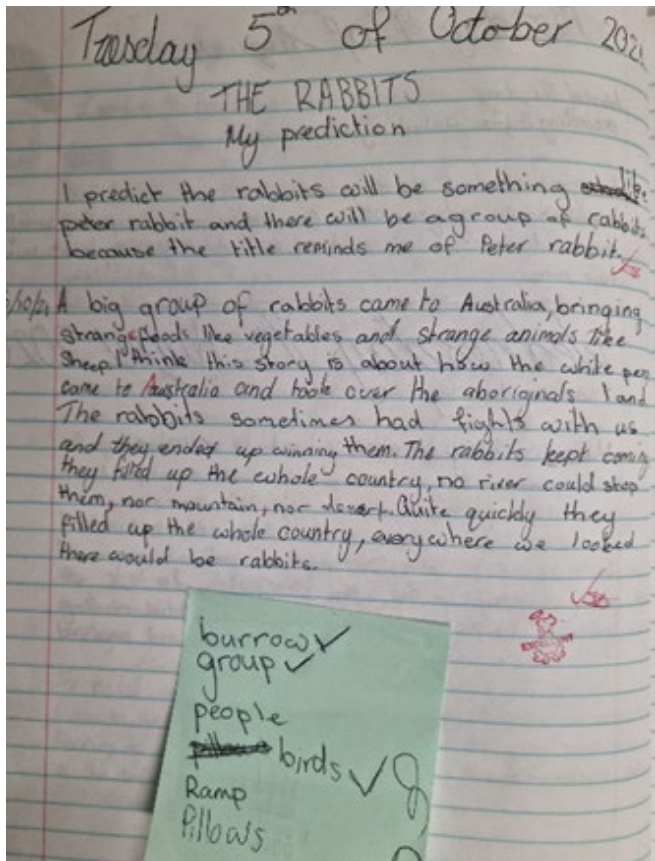 Tuesday 5th of October 202
THE RABBITS
My prediction
I predict the rabbits will be something like
peter rabbit and there will be a group of rabbits
because the title reminds me of Peter rabbit.
/10/21 A big group of rabbits came to Australia, bringing
strange foods like vegetables and strange animals like
sheep. I think this story is about how the white peo
came to Australia and took over the aboriginals land
The rabbits sometimes had fights with us
and they ended up winning them. The rabbits kept coming
they filled up the whole country, no river could stop
them, nor mountain, nor desert. Quite quickly they
filled up the whole country, everywhere we looked
there would be rabbits.
burrow ✓
group ✓
people
birds ✓
Ramp
Pillows